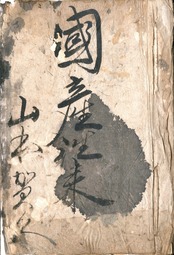 國産往来
山本